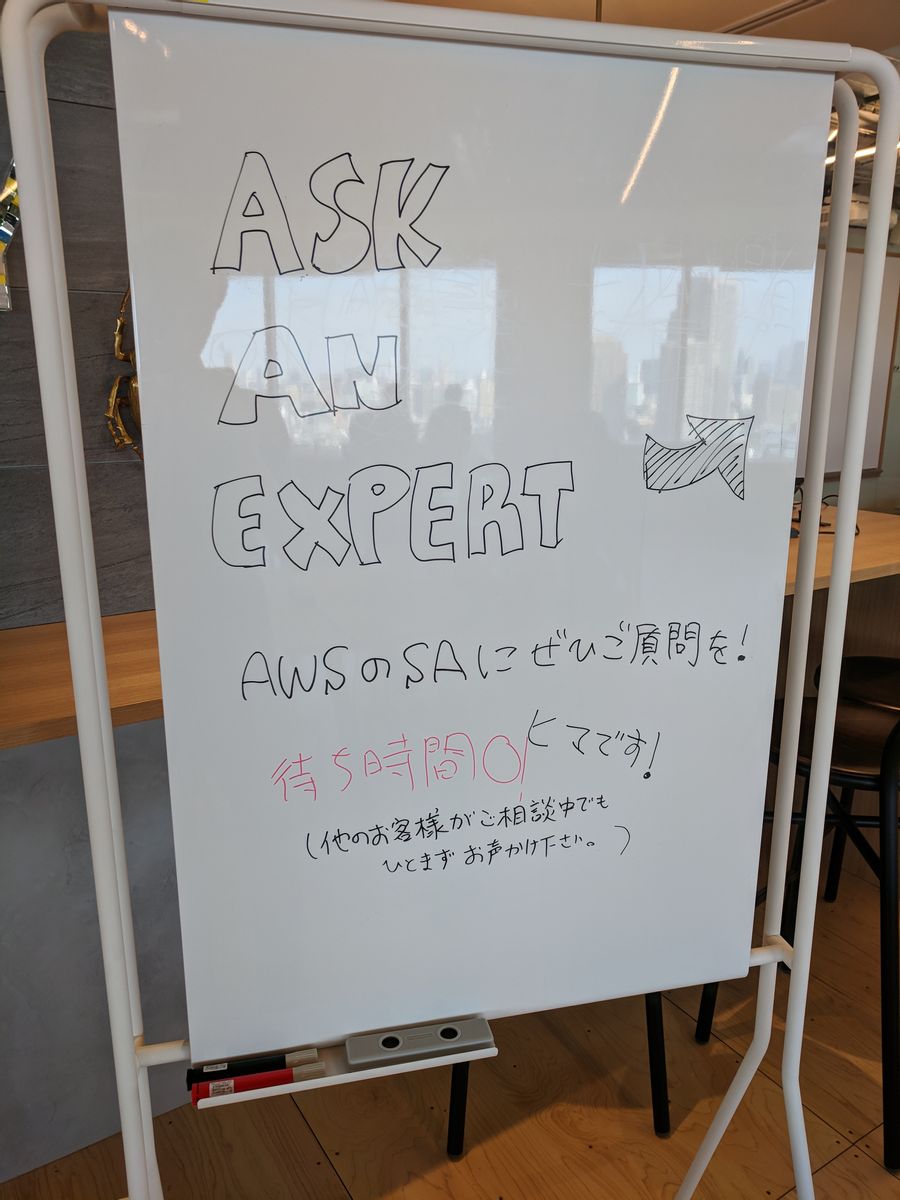 ASK
AN
EXPERT
AWSのSAにぜひご質問を!
待ち時間0! ヒマです!
(他のお客様がご相談中でも
ひとまずお声かけ下さい。)